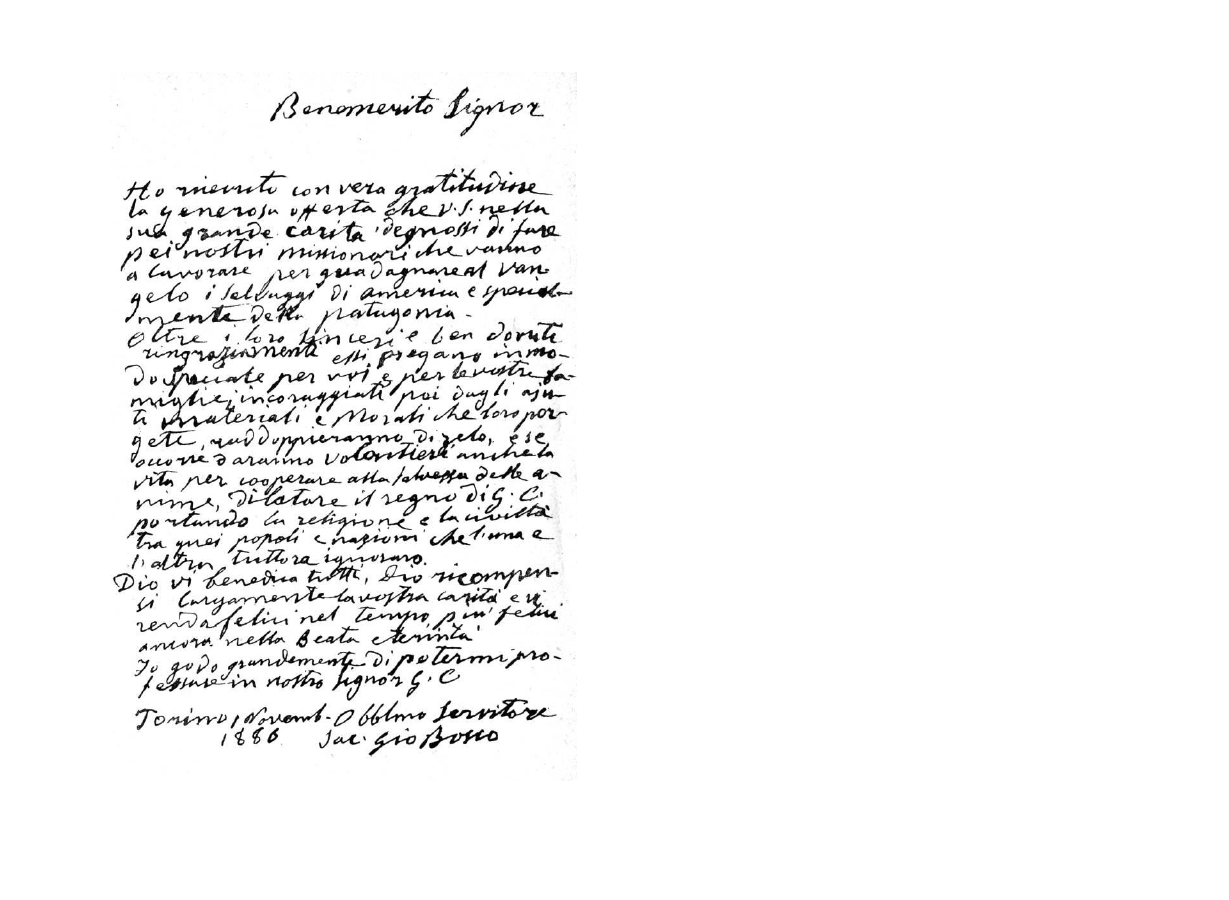 Benemerito Signor
Ho ricevuto con vera gratitudine
la generosa offerta che V.S. nella
sua grande carità degnossi di fare
pei nostri missionari che vanno
a lavorare per guadagnare al Van-
gelo i Selvaggi di america e special-
mente della patagonia.
Oltre i loro sinceri e ben dovuti
ringraziamenti essi pregano in mo-
do speciale per voi e per le vostre fa-
miglie; incoraggiati poi dagli aju-
ti materiali e Morali che loro por-
gete, raddoppieranno di zelo, e se
occorre daranno volontieri anche la
vita per cooperare alla salvezza delle a-
nime, dilatare il regno di G. C.
portando la religione e la civiltà
tra quei popoli e nazioni che l'una e
l'altra tuttora ignorano.
Dio vi benedica tutti, Dio ricompen-
si largamente la vostra carità e vi
renda felici nel tempo, più felici
ancora nella Beata eternità
Io godo grandemente di potermi pro-
fessare in nostro Signor G. C
Torino, 1 Novemb. Obblmo Servitore
1886 Sac. Gio Bosco